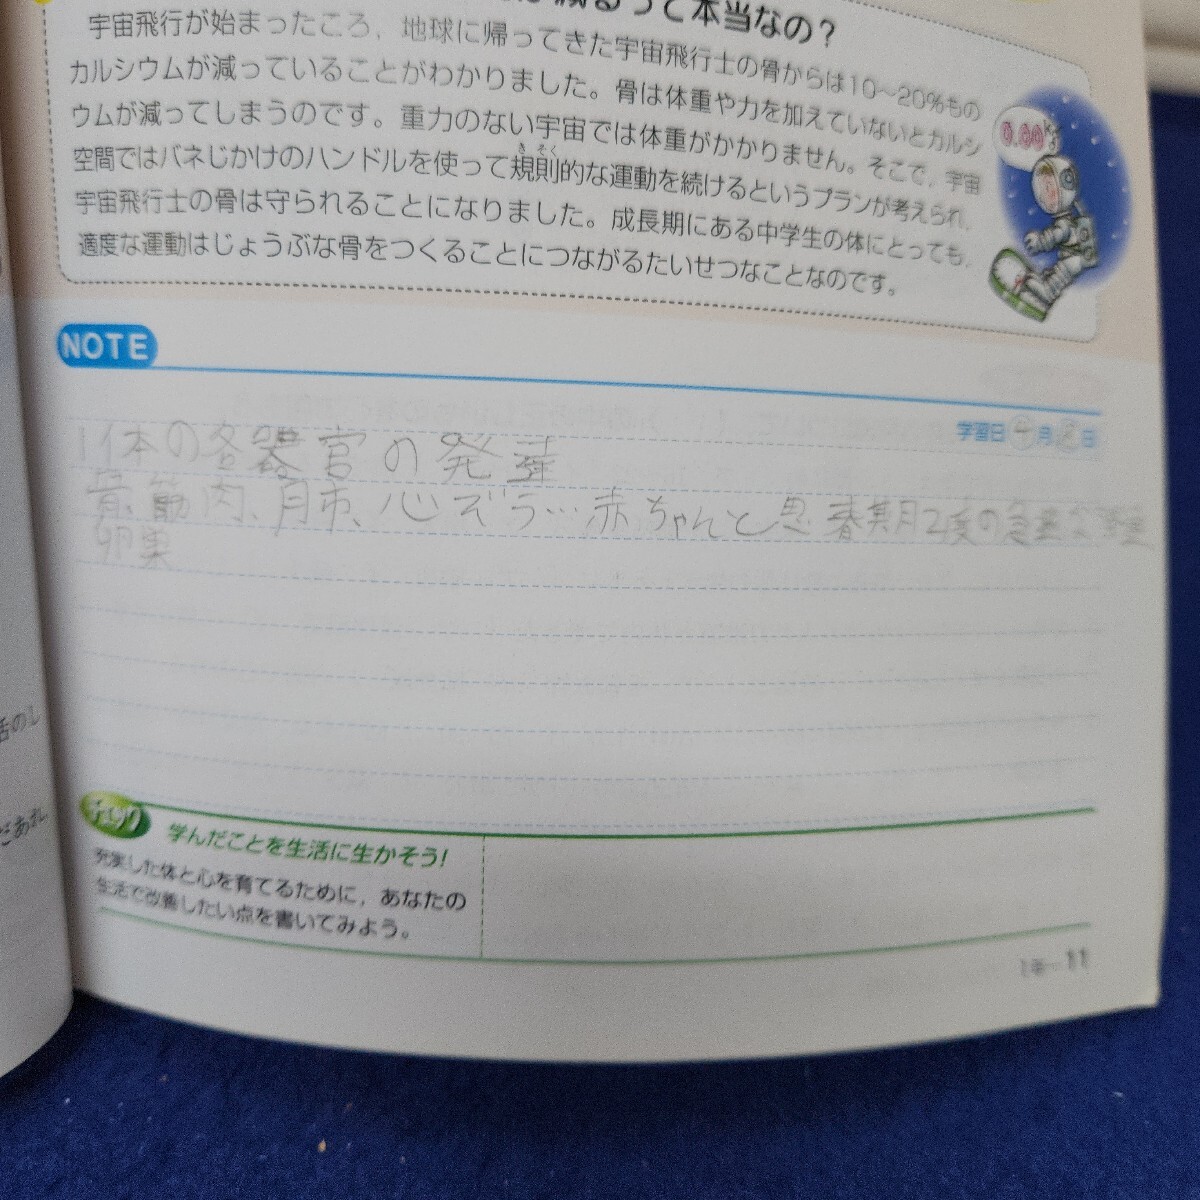 減るって本当なの？
宇宙飛行が始まったころ，地球に帰ってきた宇宙飛行士の骨からは10～20%もの
カルシウムが減っていることがわかりました。骨は体重や力を加えていないとカルシ
ウムが減ってしまうのです。重力のない宇宙では体重がかかりません。そこで，宇宙
空間ではバネじかけのハンドルを使って規則的な運動を続けるというプランが考えられ，
きそく
宇宙飛行士の骨は守られることになりました。成長期にある中学生の体にとっても，
適度な運動はじょうぶな骨をつくることにつながるたいせつなことなのです。
0.00kg
NOTE
学習日 月 日
1 体の各器官の発達
骨、筋肉、肺、心ぞう…赤ちゃんと思春期2度の急
卵巣
チェック
学んだことを生活に生かそう！
充実した体と心を育てるために，あなたの
生活で改善したい点を書いてみよう。
活のし
だあれ
1年－11